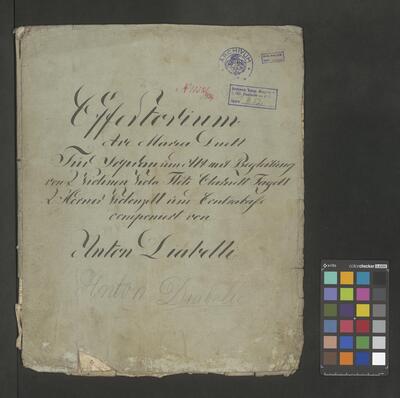 ARCHIVUM
Offertorium
Ave Maria Duett
Für Sopran und Alt mit Begleitung
von 2 Violinen Viola Flöte Clarinett Fagott
2 Hörner Violonzell und Contrabaß
componiert von
Anton Diabelli
Anton Diabelli
colorchecker